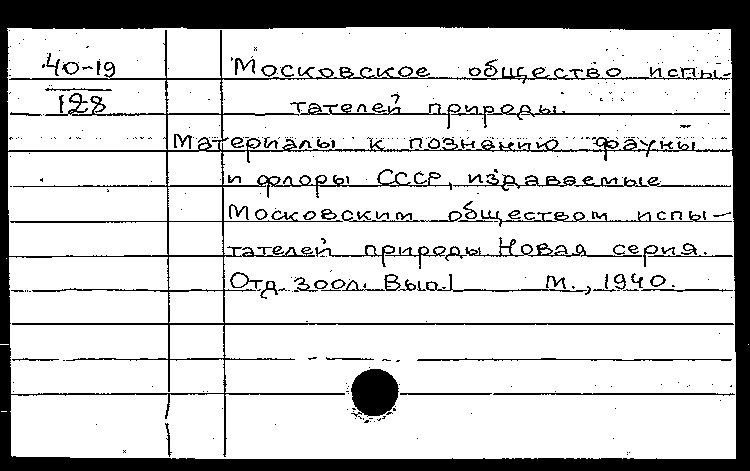 40-19
128
Московское общество испы-
тателей природы.
Материалы к познанию фауны
и флоры СССР, издаваемые
Московским обществом испы-
тателей природы Новая серия.
Отд. зоол. Вып.1 М., 1940.